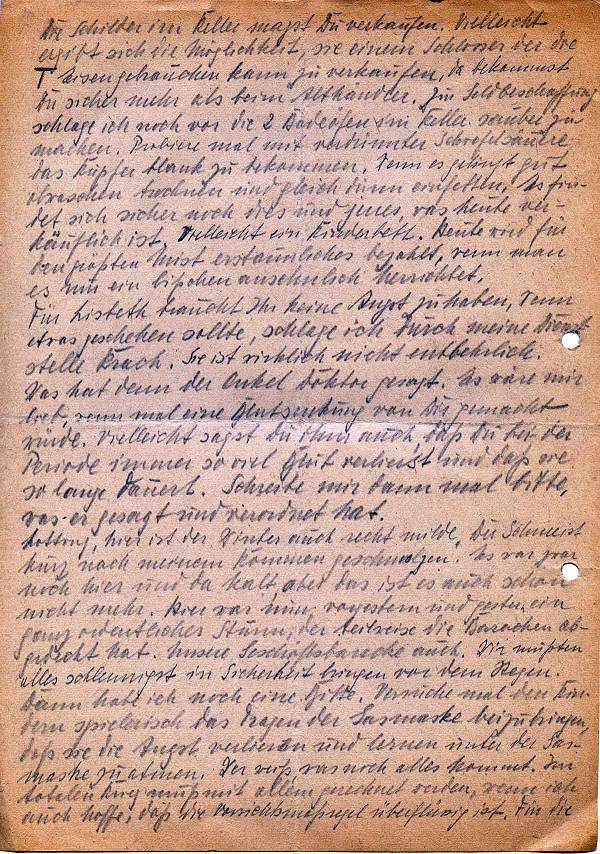 Die Schilder im Keller magst Du verkaufen. Vielleicht
ergibt sich die Möglichkeit, sie einem Schlosser der die
T Eisen gebrauchen kann zu verkaufen, da bekommst
Du sicher mehr als beim Althändler. Zur Geldbeschaffung
schlage ich noch vor die 2 Badeöfen im Keller sauber zu
machen. Probiere mal mit verdünnter Schwefelsäure
das Kupfer blank zu bekommen. Wenn es gelingt gut
abwaschen trocknen und gleich dünn einfetten. Es fin-
det sich sicher noch dies und jenes, was heute ver-
käuflich ist. Vielleicht ein Kinderbett. Heute wird für
den größten Mist erstaunliches bezahlt, wenn man
es nur ein bißchen ansehnlich herrichtet.
Für Lisbeth braucht Ihr keine Angst zu haben, wenn
etwas geschehen sollte, schlage ich durch meine Dienst
stelle Krach. Sie ist wirklich nicht entbehrlich.
Was hat denn der Onkel Doktor gesagt. Es wäre mir
lieb, wenn mal eine Blutsenkung von Dir gemacht
würde. Vielleicht sagst Du ihm auch, daß Du bei der
Periode immer so viel Blut verlierst und daß sie
so lange dauert. Schreibe mir dann mal bitte,
was er gesagt und verordnet hat.
hier ist der Winter auch recht milde. Der Schnee ist
kurz nach meinem Kommen geschmolzen. Es war zwar
noch hier und da kalt, aber das ist es auch schon
nicht mehr. Hier war nun, vorgestern und gestern ein
ganz ordentlicher Sturm, der teilweise die Baracken ab-
gedeckt hat. Unsere Geschäftsbaracke auch. Wir mußten
alles schleunigst in Sicherheit bringen vor dem Regen.
Dann habe ich noch eine Bitte. Versuche mal den Kin-
dern spielerisch das Tragen der Gasmaske beizubringen,
daß sie die Angst verlieren und lernen unter der Gas-
maske zu atmen. Wer weiß was noch alles kommt. Im
totalen Krieg muß mit allem gerechnet werden, wenn ich
auch hoffe, daß die Vorsichtsmaßregel überflüssig ist. Für die